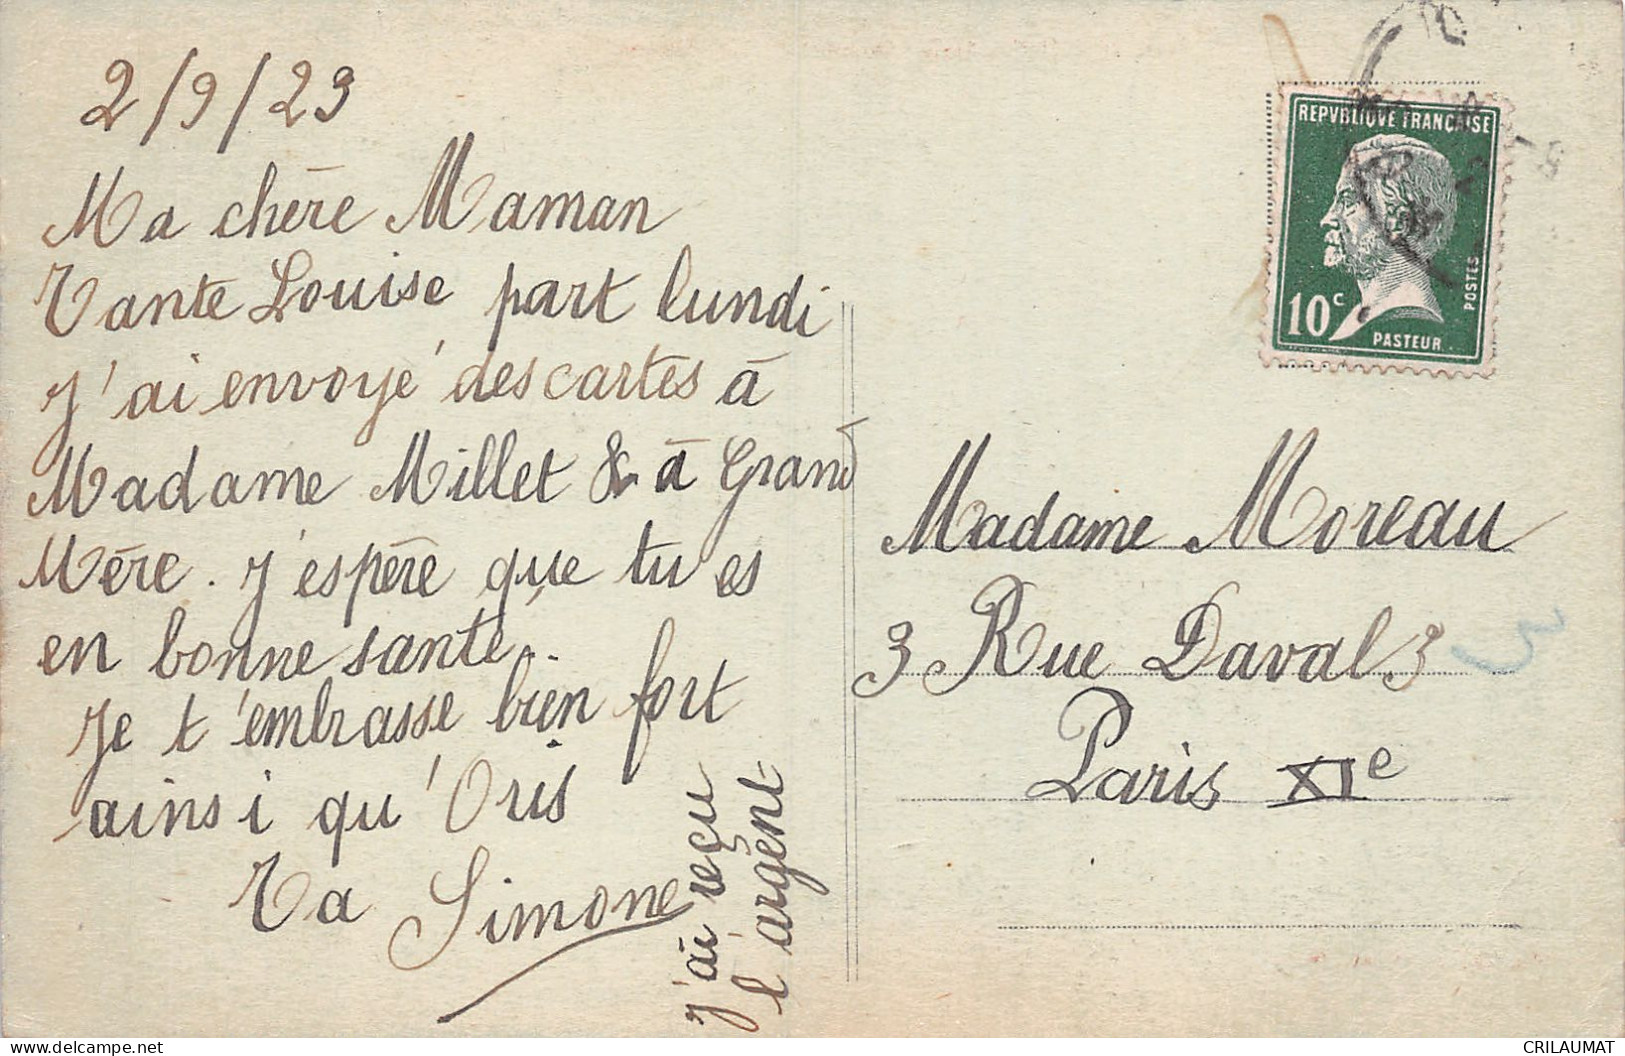 2/9/23
Ma chère Maman
Tante Louise part lundi
J'ai envoyé des cartes à
Madame Millet & à Grand
Mère. J'espère que tu es
en bonne santé.
Je t'embrasse bien fort
ainsi qu'
Ta Simone
j'ai reçu
l'argent
REPVBLIQVE FRANCAISE
10c
POSTES
PASTEUR
Madame Moreau
3 Rue Daval 3
Paris XIe
3
CRILAUMAT